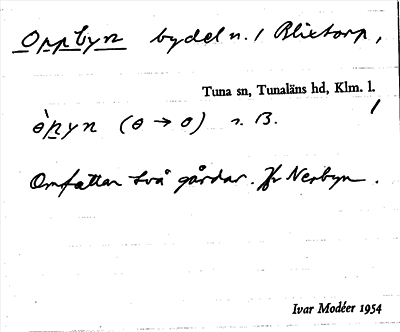 Oppbyn bydel n. i Blixtorp,
Tuna sn, Tunaläns hd, Klm. l.
ònyn (o → o) n. B.
Omfattar två gårdar. Jfr Nerbyn.
Ivar Modéer 1954